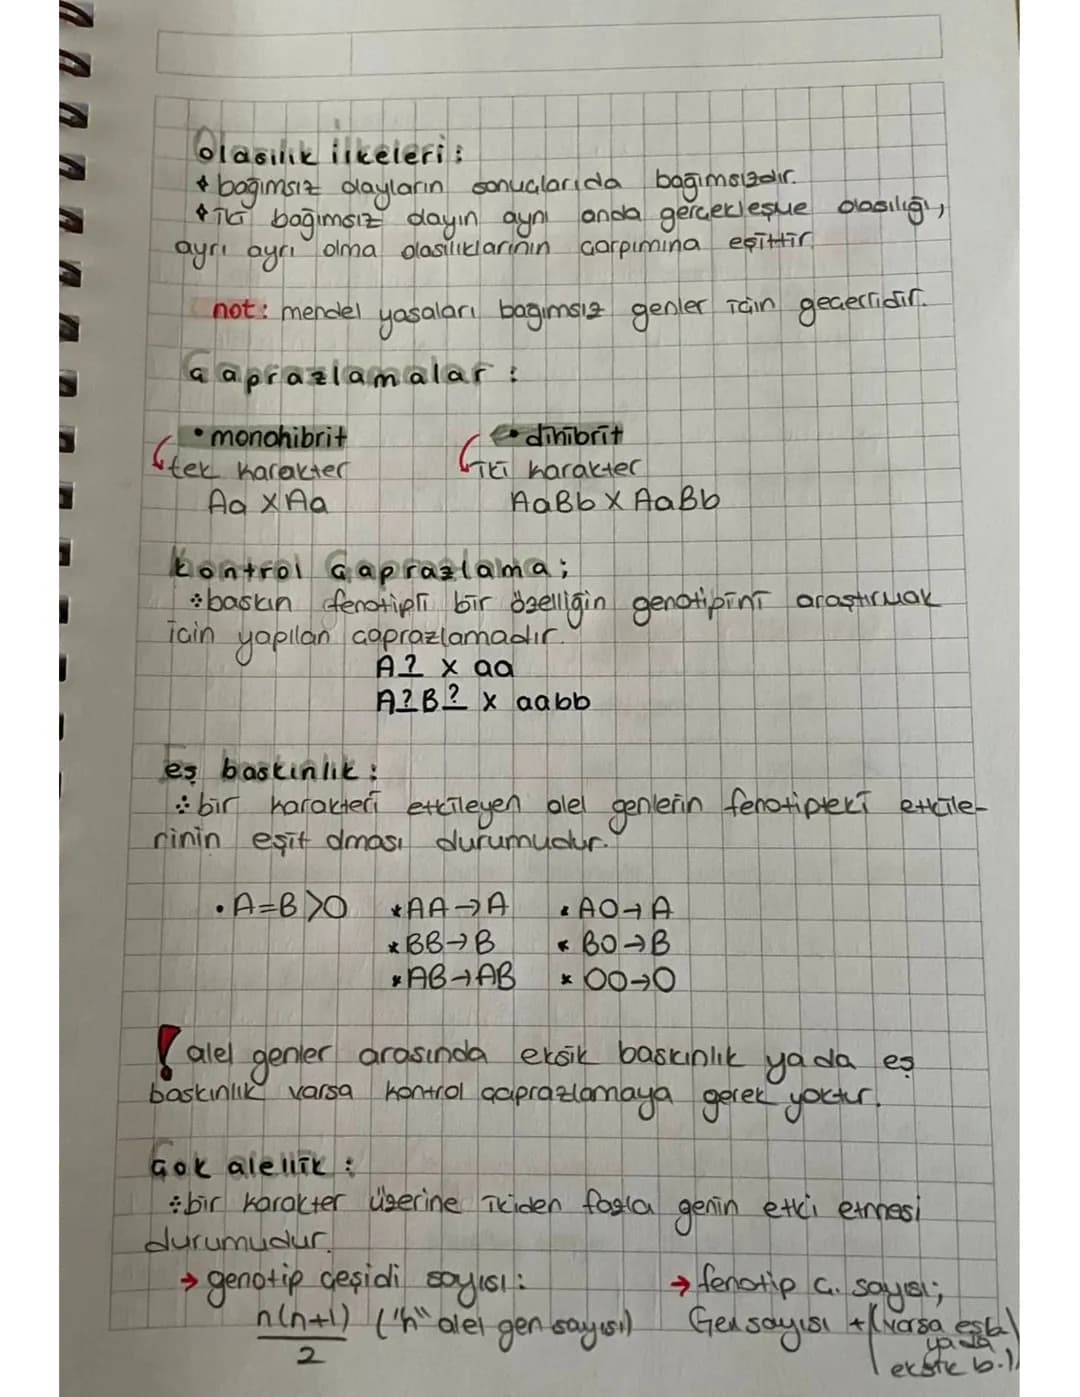 Olasılık ilkeleri:
bağımsız olayların sonuçlarıda bağımsızdır.
iki bağımsız olayın aynı anda gerçekleşme olasılığı,
ayrı ayrı olma olasılıklarının çarpımına eşittir.
not: mendel yasaları bağımsız genler için geçerlidir.
Çaprazlamalar:
• monohibrit • dihibrit
tek karakter iki karakter
Aa X Aa AaBb X AaBb
Kontrol Çaprazlama;
baskın fenotipli bir özelliğin genotipini araştırmak
için yapılan çaprazlamadır.
A? x aa
A?B? x aabb
eş baskınlık:
bir karakteri etkileyen alel genlerin fenotipteki etkile-
rinin eşit olması durumudur.
• A=B>O *AA→A *AO→A
*BB→B *BO→B
*AB→AB *OO→O
! alel genler arasında eksik baskınlık yada eş
baskınlık varsa kontrol çaprazlamaya gerek yoktur.
Çok alellik:
bir karakter üzerine ikiden fazla genin etki etmesi
durumudur.
→ genotip çeşidi sayısı: → fenotip ç. sayısı;
n(n+1) ("n" alel gen sayısı) Gen sayısı + (varsa eşb
2 yada
eksik b.)